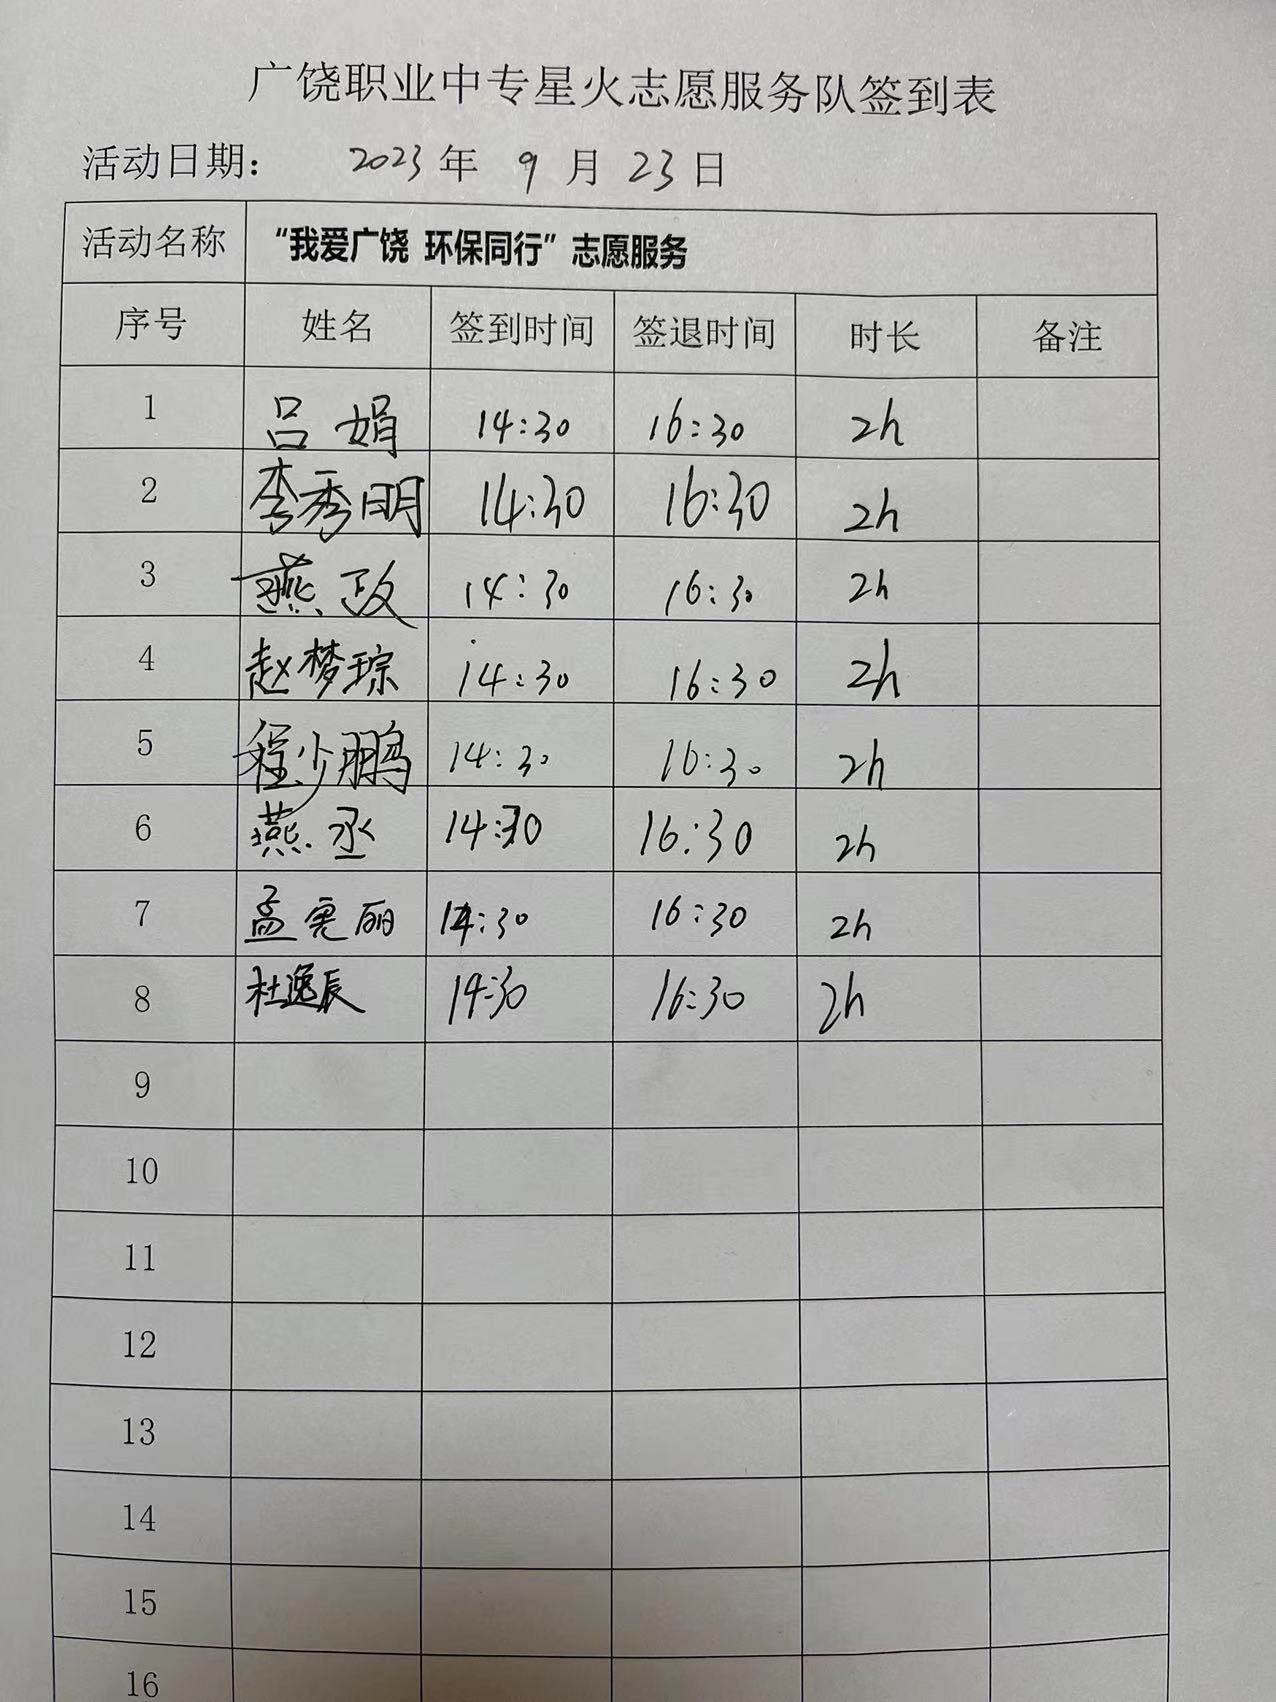 广饶职业中专星火志愿服务队签到表
活动日期： 2023年 9月 23日
活动名称 “我爱广饶 环保同行”志愿服务
序号 姓名 签到时间 签退时间 时长 备注
1 吕娟 14:30 16:30 2h
2 李秀明 14:30 16:30 2h
3 燕政 14:30 16:30 2h
4 赵梦琮 14:30 16:30 2h
5 程少鹏 14:30 16:30 2h
6 燕丞 14:30 16:30 2h
7 孟 丽 14:30 16:30 2h
8 杜逸辰 14:30 16:30 2h
9
10
11
12
13
14
15
16